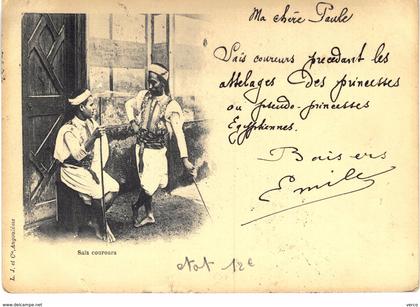 Ma chère Paule
Saïs coureurs précédant les
attelages des princesses
ou pseudo-princesses
Egyptiennes.
Baisers
Emile
Saïs coureurs
L. J. et Cie, Angoulême
12€